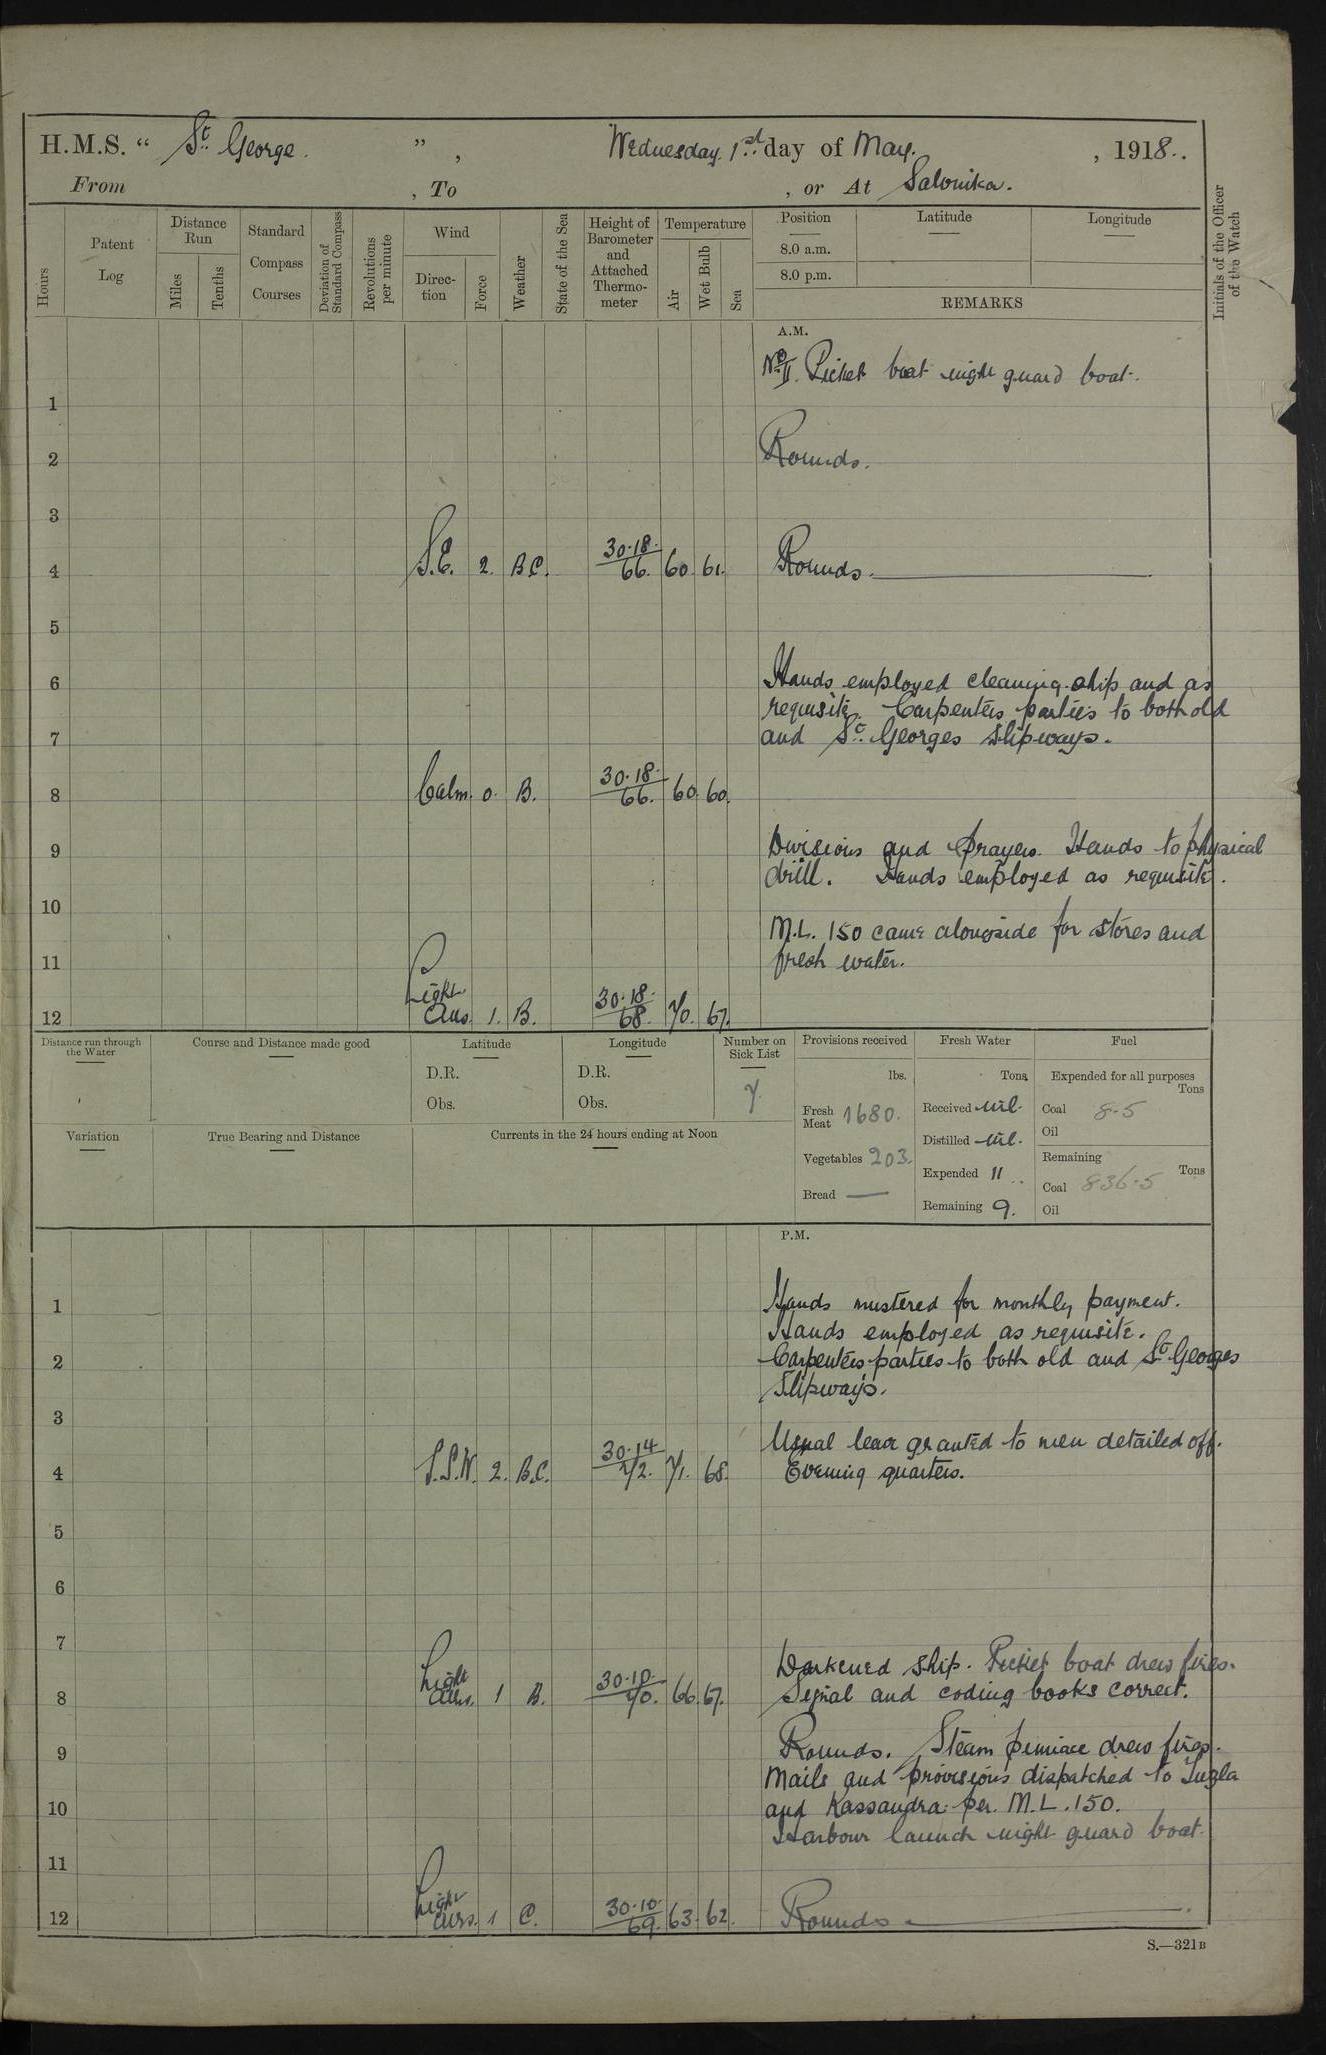 H.M.S. “ St. George. ” , Wednesday 1st day of May. , 1918..
From , To , or At Salonika.
Hours
Patent Log
Distance Run
Miles
Tenths
Standard Compass Courses
Deviation of Standard Compass
Revolutions per minute
Wind
Direction
Force
Weather
State of the Sea
Height of Barometer and Attached Thermometer
Temperature
Air
Wet Bulb
Sea
Position
8.0 a.m.
8.0 p.m.
Latitude
Longitude
REMARKS
Initials of the Officer of the Watch
A.M.
No. II. Picket boat night guard boat.
1
2 Rounds.
3
4 S.E. 2. B.C. 30.18. 66. 60. 61. Rounds.
5
6 Hands employed cleaning ship and as
requisite. Carpenters parties to both old
7 and St. Georges slipways.
8 Calm. 0. B. 30.18. 66. 60. 60.
9 Divisions and Prayers. Hands to physical
drill. Hands employed as requisite.
10
M.L. 150 came alongside for stores and
11 fresh water.
12 Light Airs. 1. B. 30.18. 68. 70. 67.
Distance run through the Water
Course and Distance made good
Latitude
D.R.
Obs.
Longitude
D.R.
Obs.
Number on Sick List
7.
Provisions received
lbs.
Fresh Meat 1680.
Vegetables 203.
Bread —
Fresh Water
Tons
Received nil.
Distilled nil.
Expended 11
Remaining 9.
Fuel
Expended for all purposes
Tons
Coal 8.5
Oil
Remaining
Tons
Coal 836.5
Oil
Variation
True Bearing and Distance
Currents in the 24 hours ending at Noon
P.M.
1 Hands mustered for monthly payment.
Hands employed as requisite.
2 Carpenters parties to both old and St. Georges
Slipways.
3
Usual leave granted to men detailed off.
4 S.S.W. 2. B.C. 30.14 72. 71. 68. Evening quarters.
5
6
7
Darkened ship. Picket boat drew fires.
8 Light airs. 1 B. 30.10. 70. 66. 67. Signal and coding books correct.
9 Rounds. Steam pinnace drew fires.
Mails and provisions dispatched to Tuzla
10 and Kassandra per M.L. 150.
Harbour launch night guard boat.
11
12 Light airs. 1 C. 30.10 69. 63. 62. Rounds
S.—321B